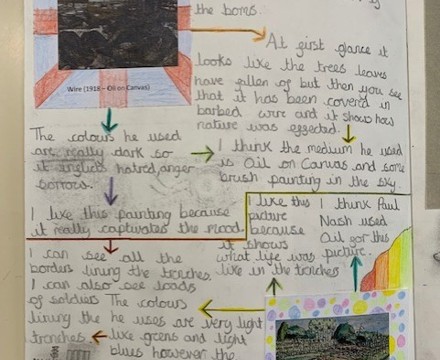 the boms.
Wire (1918 – Oil on Canvas)
At first glance it
looks like the trees leaves
have fallen of but then you see
that it has been covered in
barbed wire and it shows how
nature was effected.
The colours he used
are really dark so
it inflicts hatred, anger
sorrows.
I think the medium he used
is Oil on Canvas and some
brush painting in the sky.
I like this painting because
it really captivates the mood
I like this
picture
because
it shows
what life was
like in the trenches
I think Paul
Nash used
Oil for this
picture.
I can see all the
borders lining the trenches.
I can also see loads
of soldiers
lining the
trenches
The colours
he uses are very light
like greens and light
blues however the